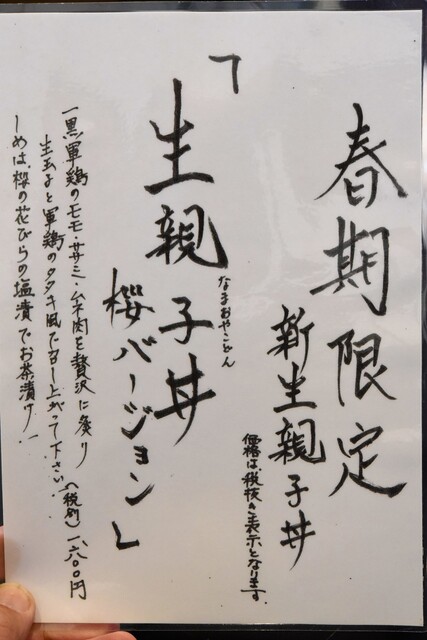 春期限定
新生親子丼
価格は税抜き表示となります。
「生親子丼
なまおやこどん
桜バージョン」
一黒軍鶏のモモ・ササミ・ムネ肉を贅沢に炙り
生玉子と軍鶏のタタキ風で召し上がって下さい。(税別)一、六〇〇円
〆めは、桜の花びらの塩漬でお茶漬け!